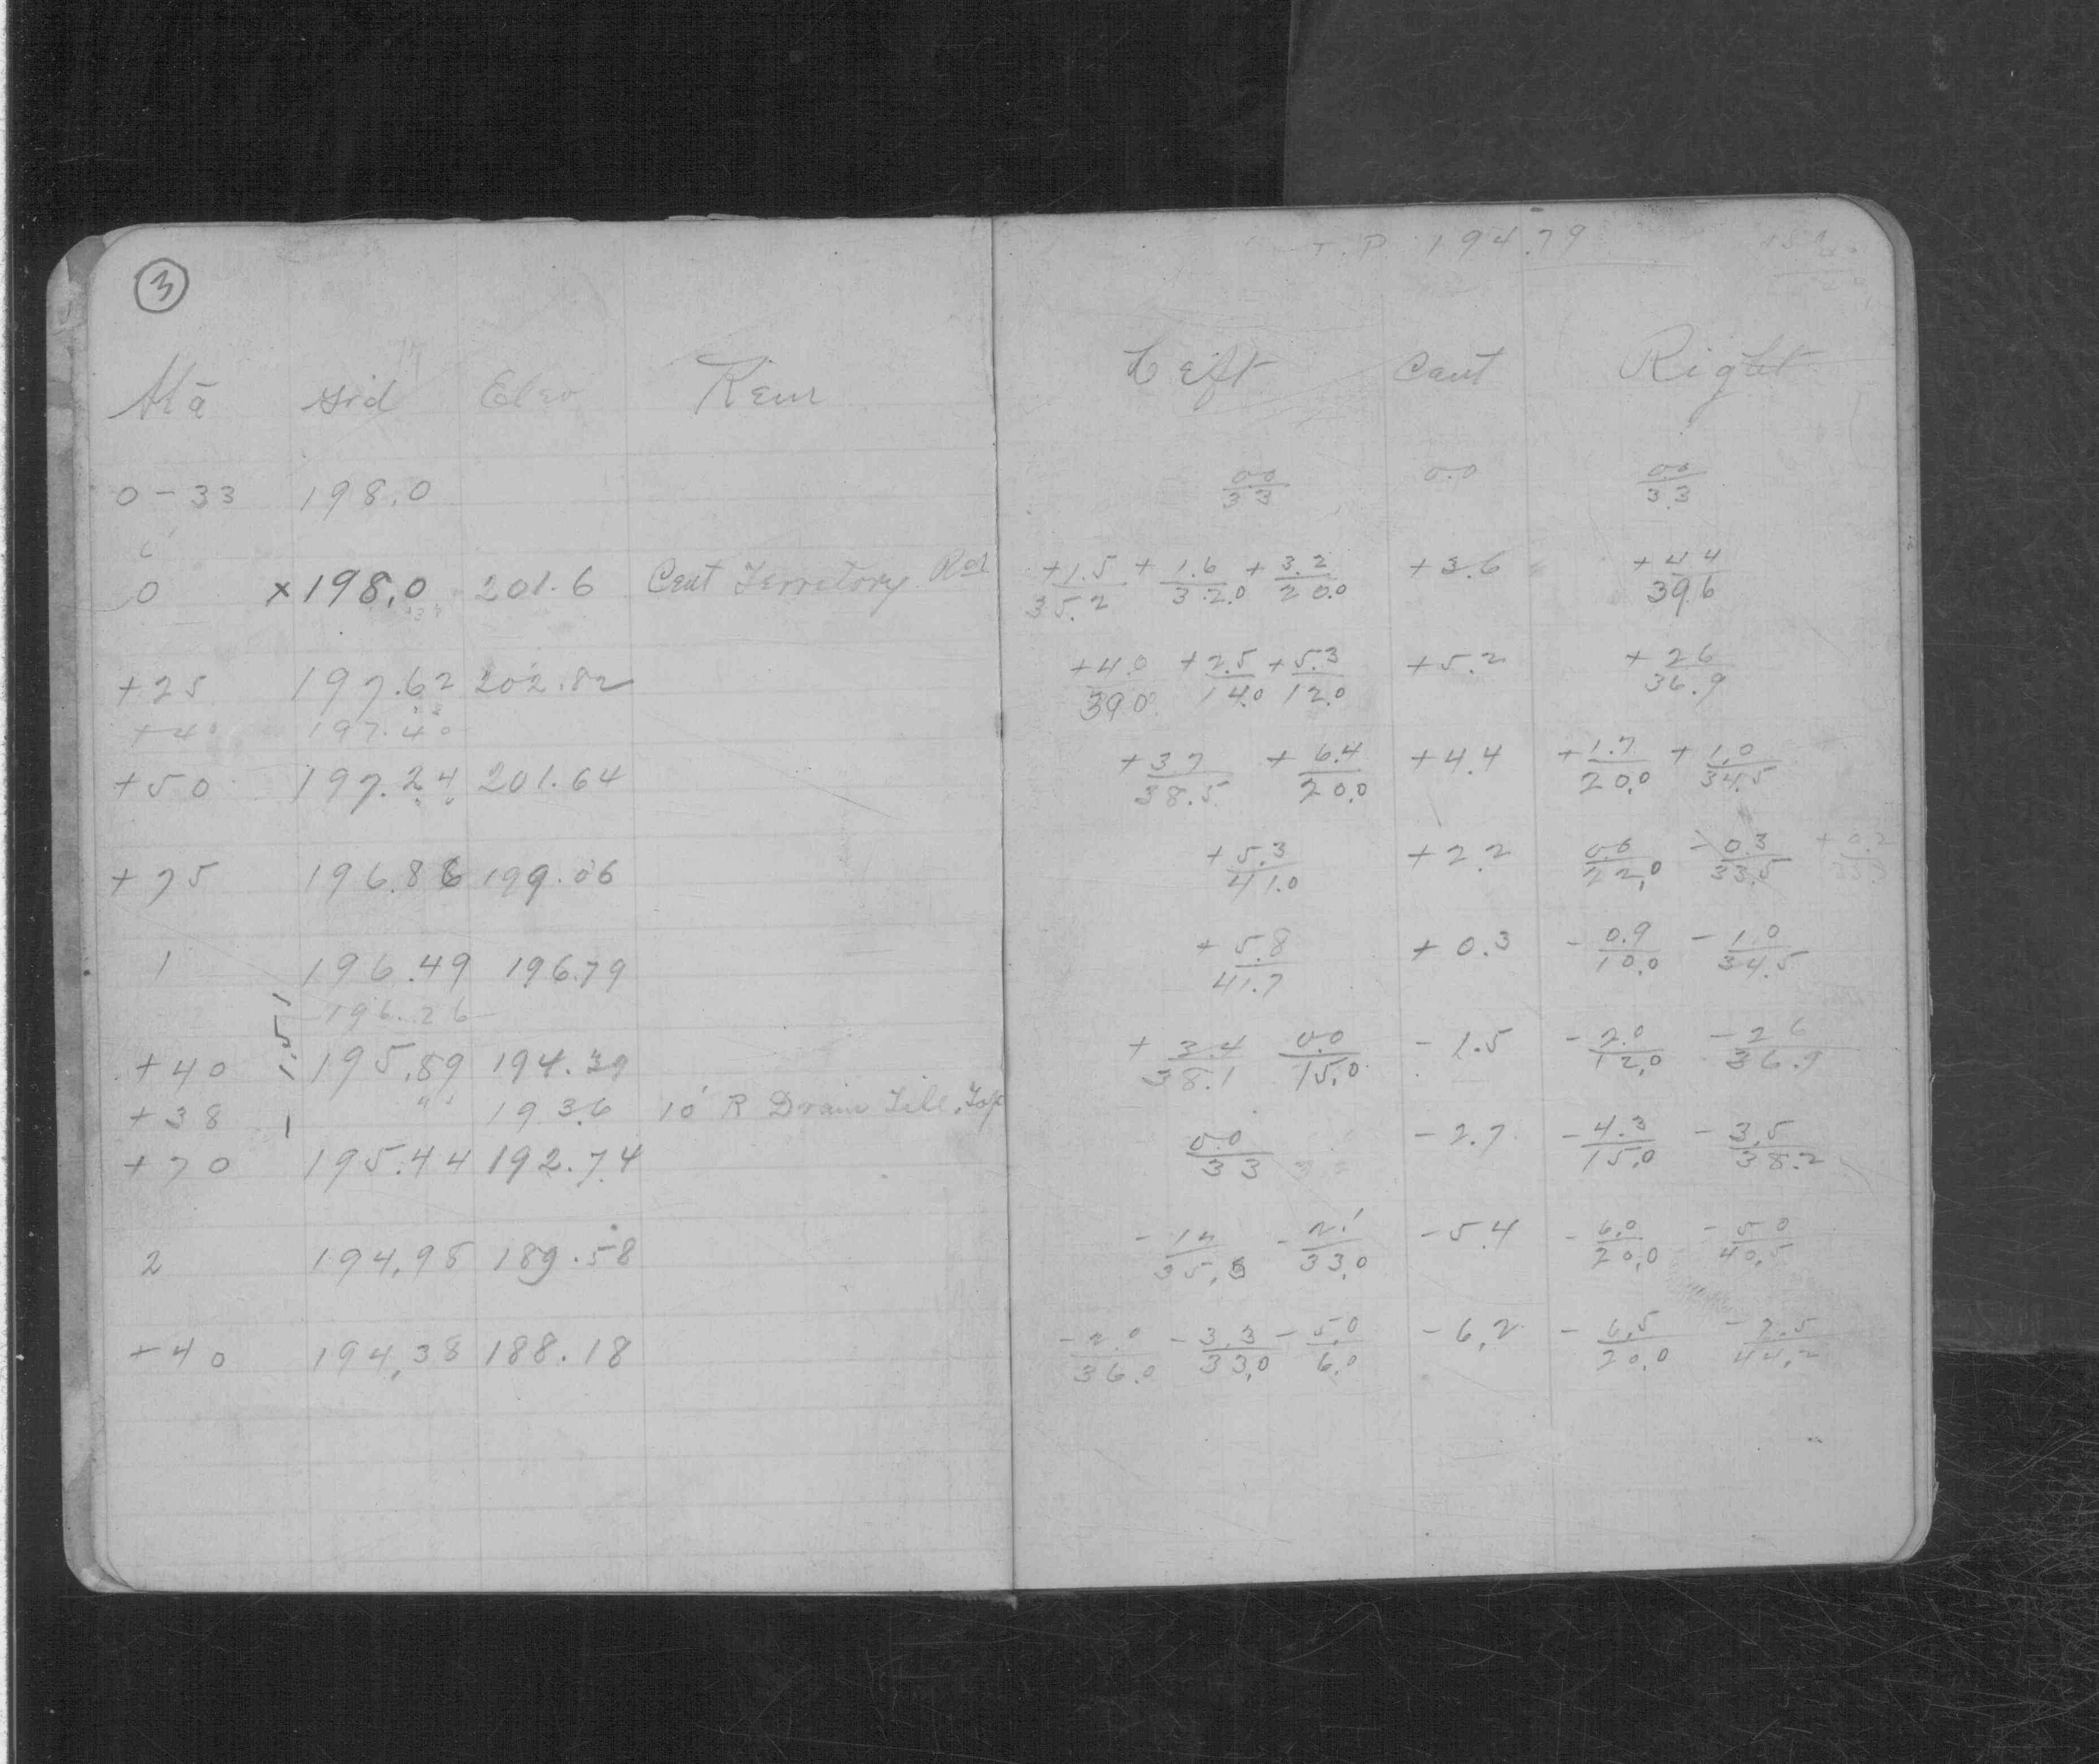 3
T.P. 194.79
Sta Grd Elev Rem Left Cent Right
0-33 198.0 0.0/33 0.0 0.0/33
0 x198.0 201.6 Cent Territory Rd +1.5/35.2 +1.6/32.0 +3.2/20.0 +3.6 +4.4/39.6
+25 197.62 202.82 +4.0/39.0 +2.5/14.0 +5.3/12.0 +5.2 +2.6/36.9
+40 197.40
+50 197.24 201.64 +3.7/38.5 +6.4/20.0 +4.4 +1.7/20.0 +1.0/34.5
+75 196.86 199.06 +5.3/41.0 +2.2 0.0/22.0 -0.3/33.5
1 196.49 196.79 +5.8/41.7 +0.3 -0.9/10.0 -1.0/34.5
196.26
1.51
+40 195.89 194.39 +3.4/38.1 0.0/15.0 -1.5 -2.0/12.0 -2.6/36.9
+38 " " 193.6 10' R Drain Tile, Top
+70 195.44 192.74 0.0/33 -2.7 -4.3/15.0 -3.5/38.2
2 194.98 189.58 -2.1/33.0 -5.4 -6.0/20.0 -5.0/40.5
+40 194.38 188.18 -2.0/36.0 -3.3/33.0 -5.0/6.0 -6.2 -6.5/20.0 -7.5/44.2